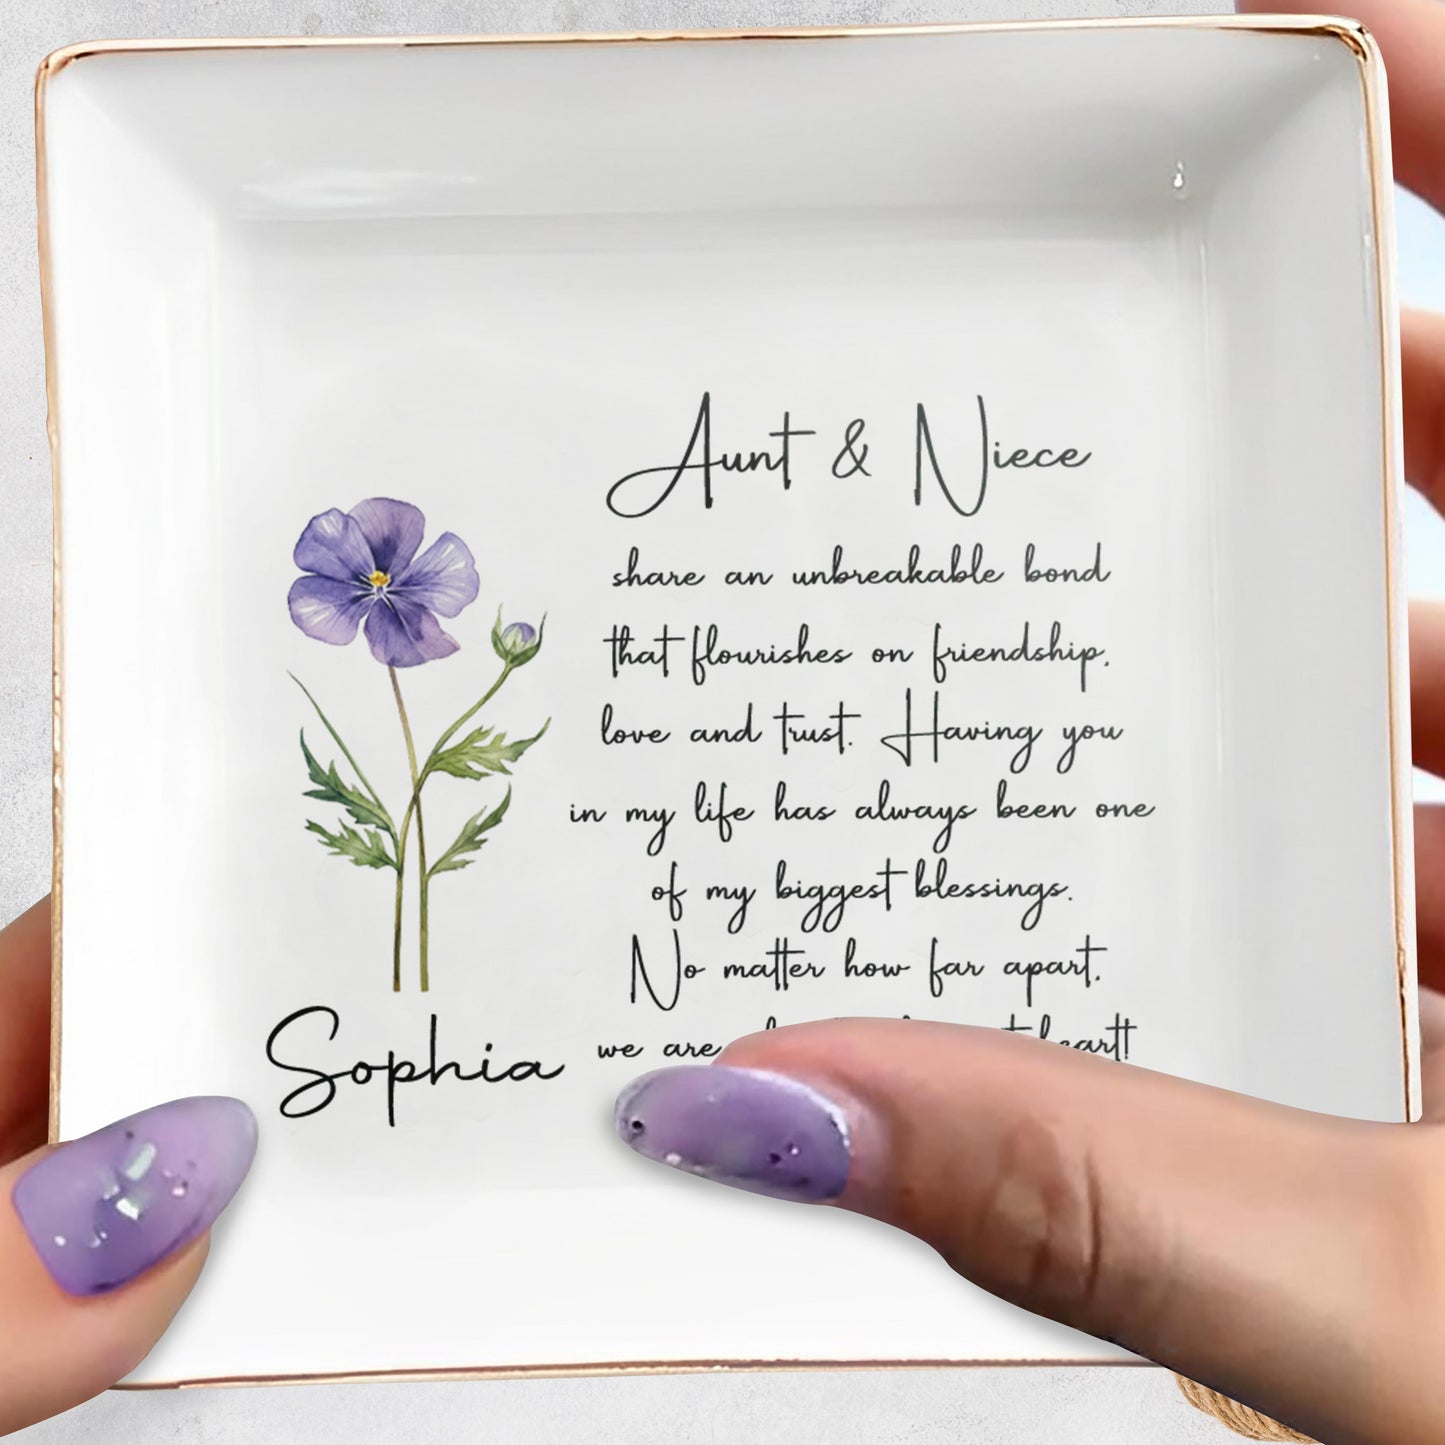 Aunt & Niece
share an unbreakable bond
that flourishes on friendship,
love and trust. Having you
in my life has always been one
of my biggest blessings.
No matter how far apart,
we are
Sophia